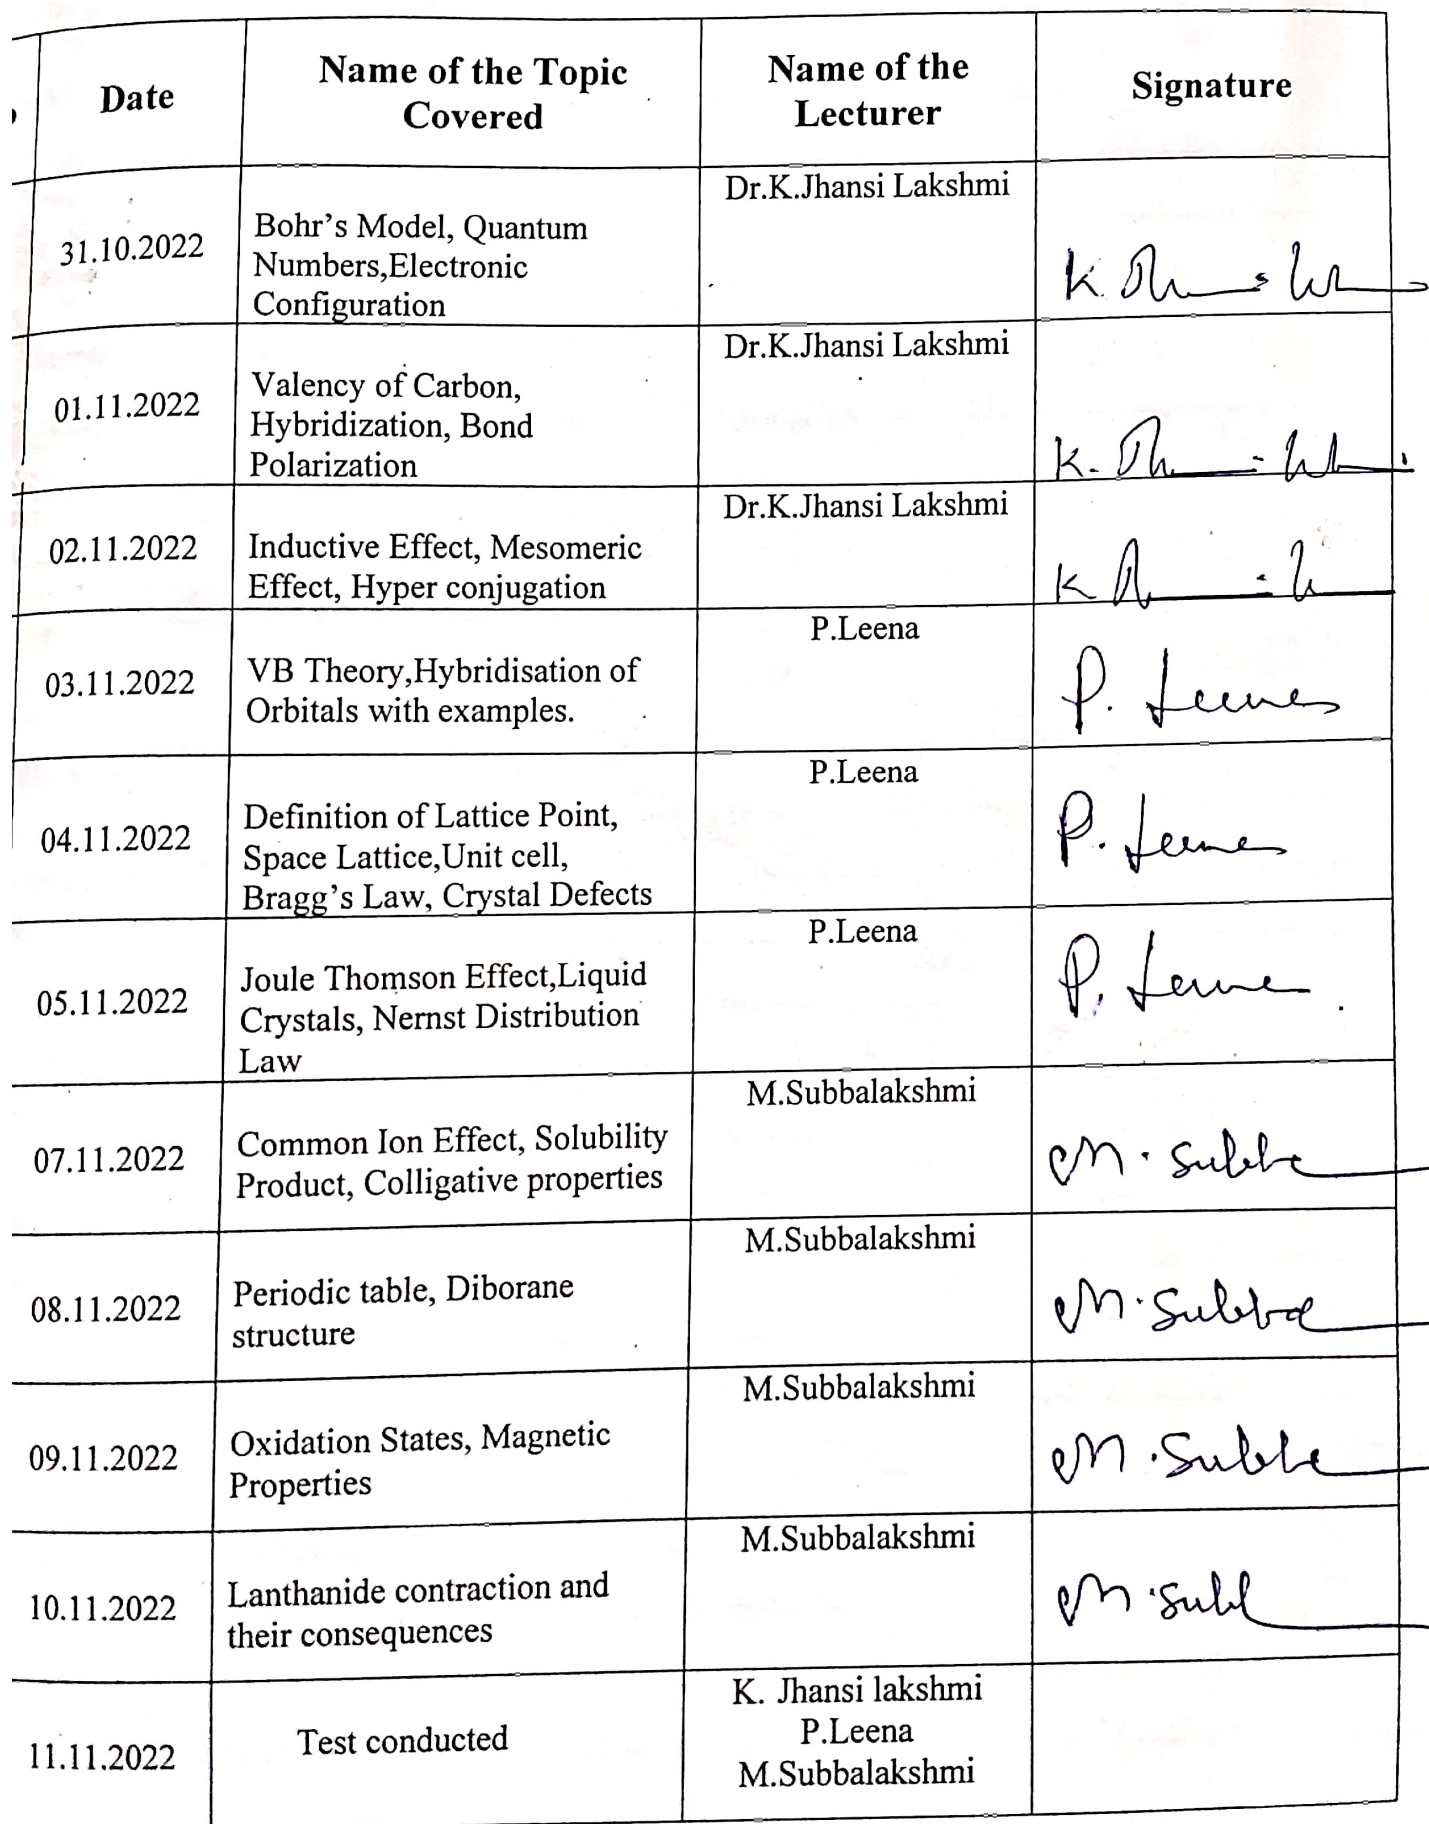 Date
Name of the Topic
Covered
Name of the
Lecturer
Signature
31.10.2022
Bohr's Model, Quantum
Numbers,Electronic
Configuration
Dr.K.Jhansi Lakshmi
01.11.2022
Valency of Carbon,
Hybridization, Bond
Polarization
Dr.K.Jhansi Lakshmi
02.11.2022
Inductive Effect, Mesomeric
Effect, Hyper conjugation
Dr.K.Jhansi Lakshmi
03.11.2022
VB Theory,Hybridisation of
Orbitals with examples.
P.Leena
P. Leena
04.11.2022
Definition of Lattice Point,
Space Lattice,Unit cell,
Bragg's Law, Crystal Defects
P.Leena
P. Leena
05.11.2022
Joule Thomson Effect,Liquid
Crystals, Nernst Distribution
Law
P.Leena
P. Leena
07.11.2022
Common Ion Effect, Solubility
Product, Colligative properties
M.Subbalakshmi
M. Subba
08.11.2022
Periodic table, Diborane
structure
M.Subbalakshmi
M. Subba
09.11.2022
Oxidation States, Magnetic
Properties
M.Subbalakshmi
M. Subba
10.11.2022
Lanthanide contraction and
their consequences
M.Subbalakshmi
M. Subb
11.11.2022
Test conducted
K. Jhansi lakshmi
P.Leena
M.Subbalakshmi